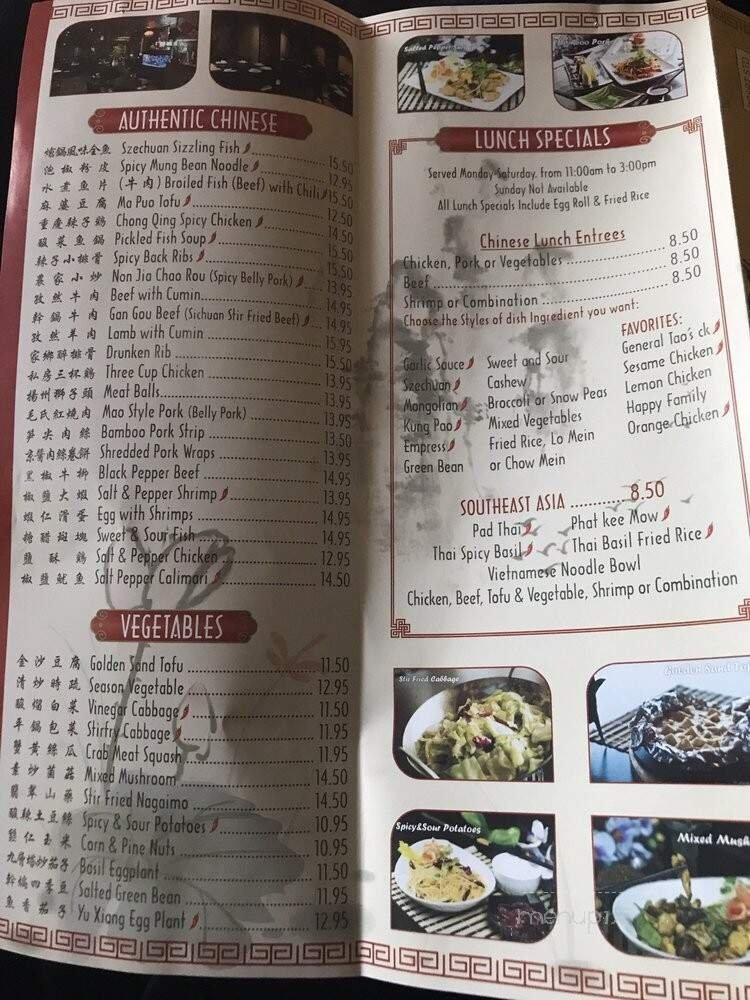 AUTHENTIC CHINESE
爐鍋風味全魚 Szechuan Sizzling Fish 15.50
泡椒粉皮 Spicy Mung Bean Noodle 12.95
水煮魚片 (牛肉) Broiled Fish (Beef) with Chili 15.50
麻婆豆腐 Ma Puo Tofu 12.50
重慶辣子鷄 Chong Qing Spicy Chicken 14.50
酸菜魚鍋 Pickled Fish Soup 15.50
辣子小排骨 Spicy Back Ribs 15.50
農家小炒 Non Jia Chao Rou (Spicy Belly Pork) 13.95
孜然牛肉 Beef with Cumin 14.95
幹鍋牛肉 Gan Gou Beef (Sichuan Stir Fried Beef) 14.95
孜然羊肉 Lamb with Cumin 15.95
家鄉醉排骨 Drunken Rib 15.50
私房三杯鷄 Three Cup Chicken 13.95
揚州獅子頭 Meat Balls 13.95
毛氏紅燒肉 Mao Style Pork (Belly Pork) 13.95
笋尖肉絲 Bamboo Pork Strip 13.50
京醬肉絲卷餅 Shredded Pork Wraps 13.95
黑椒牛柳 Black Pepper Beef 14.95
椒鹽大蝦 Salt & Pepper Shrimp 13.95
蝦仁滑蛋 Egg with Shrimps 14.95
糖醋斑塊 Sweet & Sour Fish 14.95
鹽酥鷄 Salt & Pepper Chicken 12.95
椒鹽魷魚 Salt Pepper Calimari 14.50
VEGETABLES
金沙豆腐 Golden Sand Tofu 11.50
清炒時疏 Season Vegetable 12.95
酸熘白菜 Vinegar Cabbage 11.50
平鍋包菜 Stirfry Cabbage 11.95
蟹黃絲瓜 Crab Meat Squash 11.95
素炒菌菇 Mixed Mushroom 14.50
翡翠山藥 Stir Fried Nagaimo 14.50
酸辣土豆絲 Spicy & Sour Potatoes 10.95
仁玉米 Corn & Pine Nuts 10.95
九層塔炒茄子 Basil Eggplant 11.50
幹煸四季豆 Salted Green Bean 11.95
魚香茄子 Yu Xiang Egg Plant 12.95
Salted Pepper
Pork
LUNCH SPECIALS
Served Monday-Saturday. from 11:00am to 3:00pm
Sunday Not Available
All Lunch Specials Include Egg Roll & Fried Rice
Chinese Lunch Entrees
Chicken, Pork or Vegetables 8.50
Beef 8.50
Shrimp or Combination 8.50
Choose the Styles of dish Ingredient you want:
Garlic Sauce
Szechuan
Mongolian
Kung Pao
Empress
Green Bean
Sweet and Sour
Cashew
Broccoli or Snow Peas
Mixed Vegetables
Fried Rice, Lo Mein
or Chow Mein
FAVORITES:
General Tao's ck
Sesame Chicken
Lemon Chicken
Happy Family
Orange Chicken
SOUTHEAST ASIA 8.50
Pad Thai Phat kee Mow
Thai Spicy Basil Thai Basil Fried Rice
Vietnamese Noodle Bowl
Chicken, Beef, Tofu & Vegetable, Shrimp or Combination
Stir Fried Cabbage
Golden Sand
Spicy&Sour Potatoes
Mixed Mush
menupix